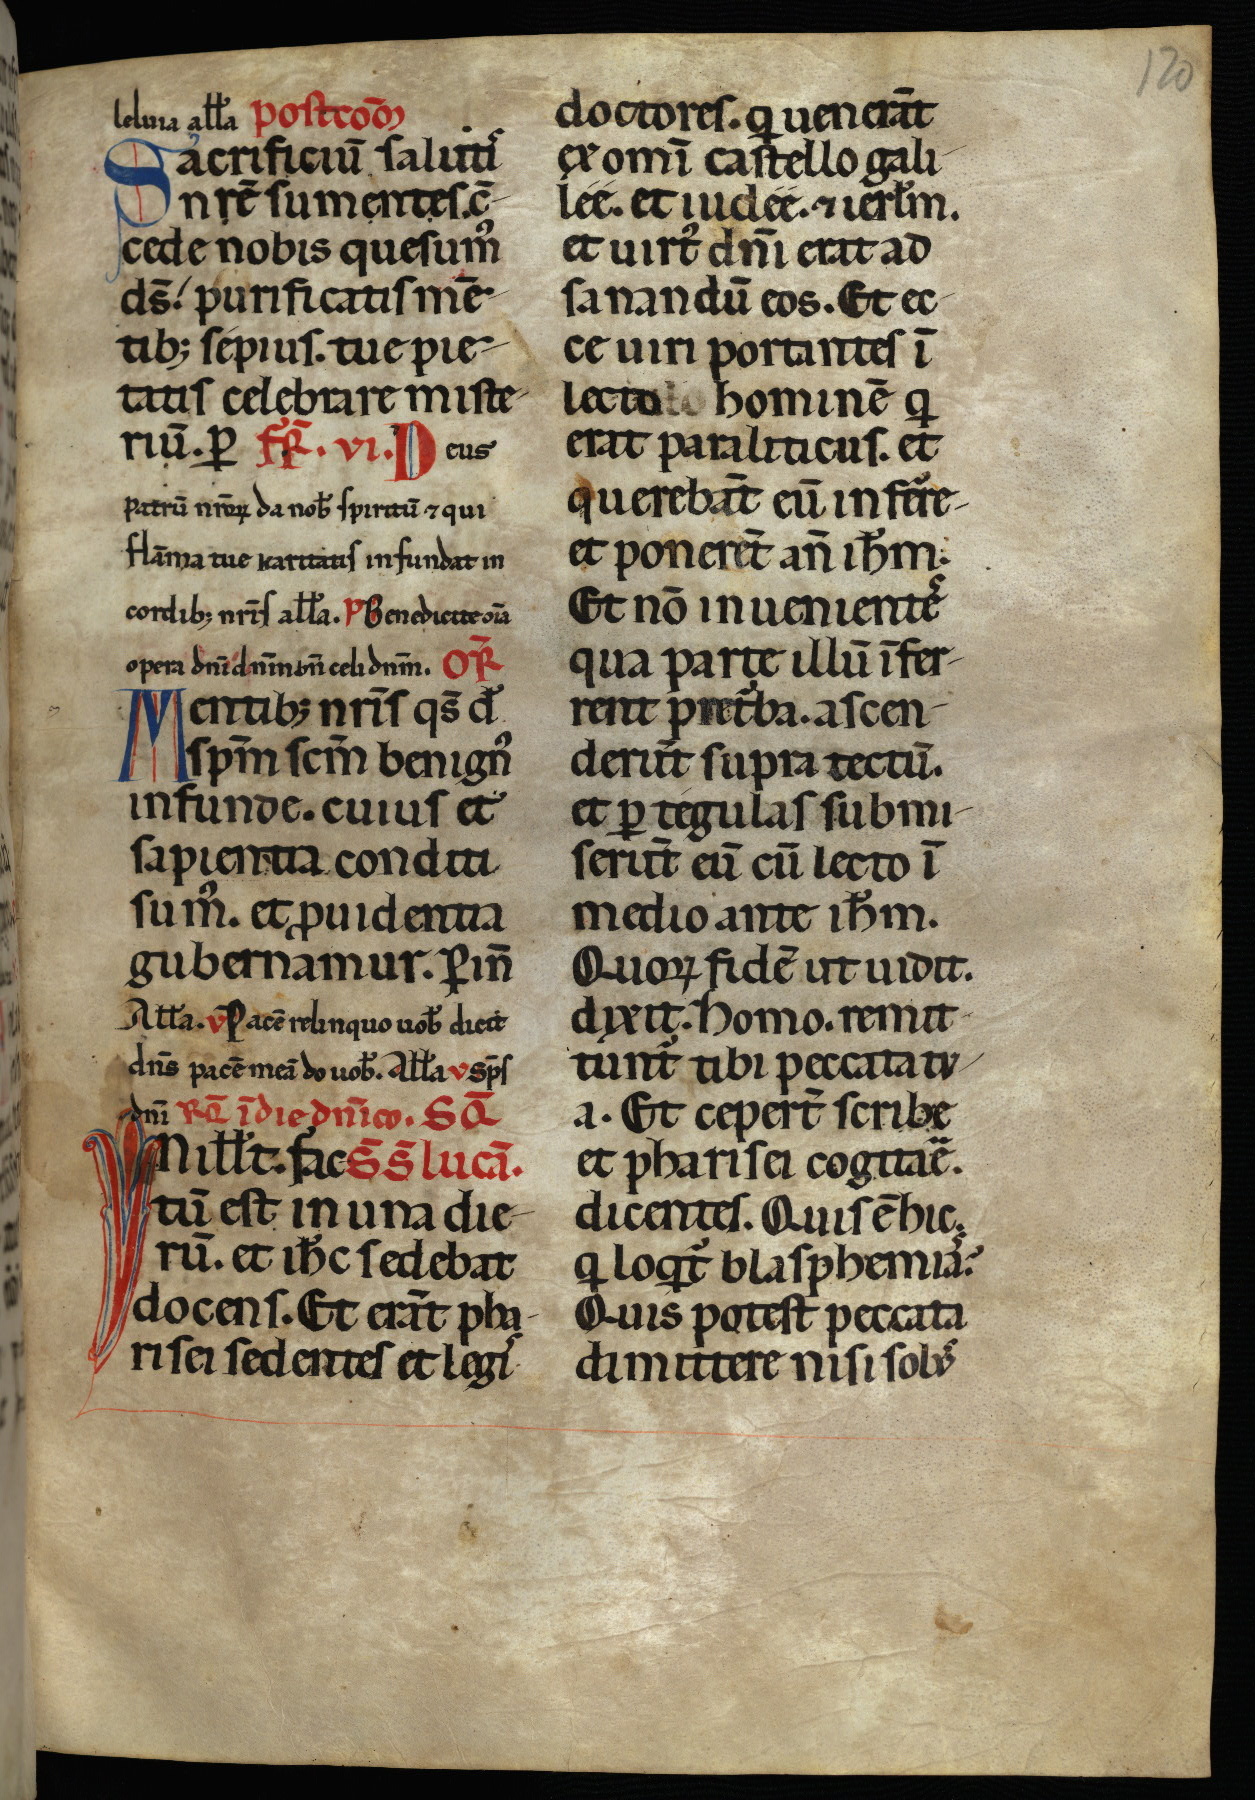 120
leluia all̄a postcom̄
Sacrificiū saluti
nr̄ē sumentes. c̄-
cede nobis quesumꝰ
ds̄. purificatis mē-
tibꝫ sepius. tue pie-
tatis celebrare miste-
riū. ꝑ fr̄. vi. Deus
patrū nr̄oꝝ da nob̄ spiritū ⁊ qui
flāma tue karitatis infundat in
cordibꝫ nr̄is all̄a. p̄ Benedicite oīa
opera dnī dnm̄ celi dnm̄. Or̄
Mentibꝫ nr̄is qs̄ d̄
spm̄ scm̄ benignꝰ
infunde. cuius et
sapientia conditi
sumꝰ. et ꝓuidentia
gubernamur. ꝑ in̄
All̄a. v Pacē relinquo uob̄ dicit
dns̄ pacē meā do uob̄. All̄a v sp̄s
dnī Rā ī die dn̄ico. Sā
IN ill̄t. fac s̄s̄ lucā.
tū est in una die-
rū. et ih̄c sedebat
docens. Et erāt pha-
risei sedentes et legi
doctores. q uenerāt
ex omī castello gali-
lee. et iudee. ⁊ ierl̄m.
et uirtꝰ dnī erat ad
sanandū eos. Et ec-
ce uiri portantes ī
lecto hominē q
erat paraliticus. et
querebāt eū inferre-
et ponerēt an̄ ih̄m.
Et nō inuenientes
qua parte illū īfer-
rent pre turba. ascen-
derūt supra tectū.
et ꝑ tegulas submi-
serūt eū cū lecto ī
medio ante ih̄m.
Quoꝝ fidē ut uidit.
dixit. homo. remit-
tunt̄ tibi peccata tu-
a. Et ceperт̄ scribe
et pharisei cogitare.
dicentes. Quis ē hic
q loqt̄ blasphemia.
Quis potest peccata
dimittere nisi solus